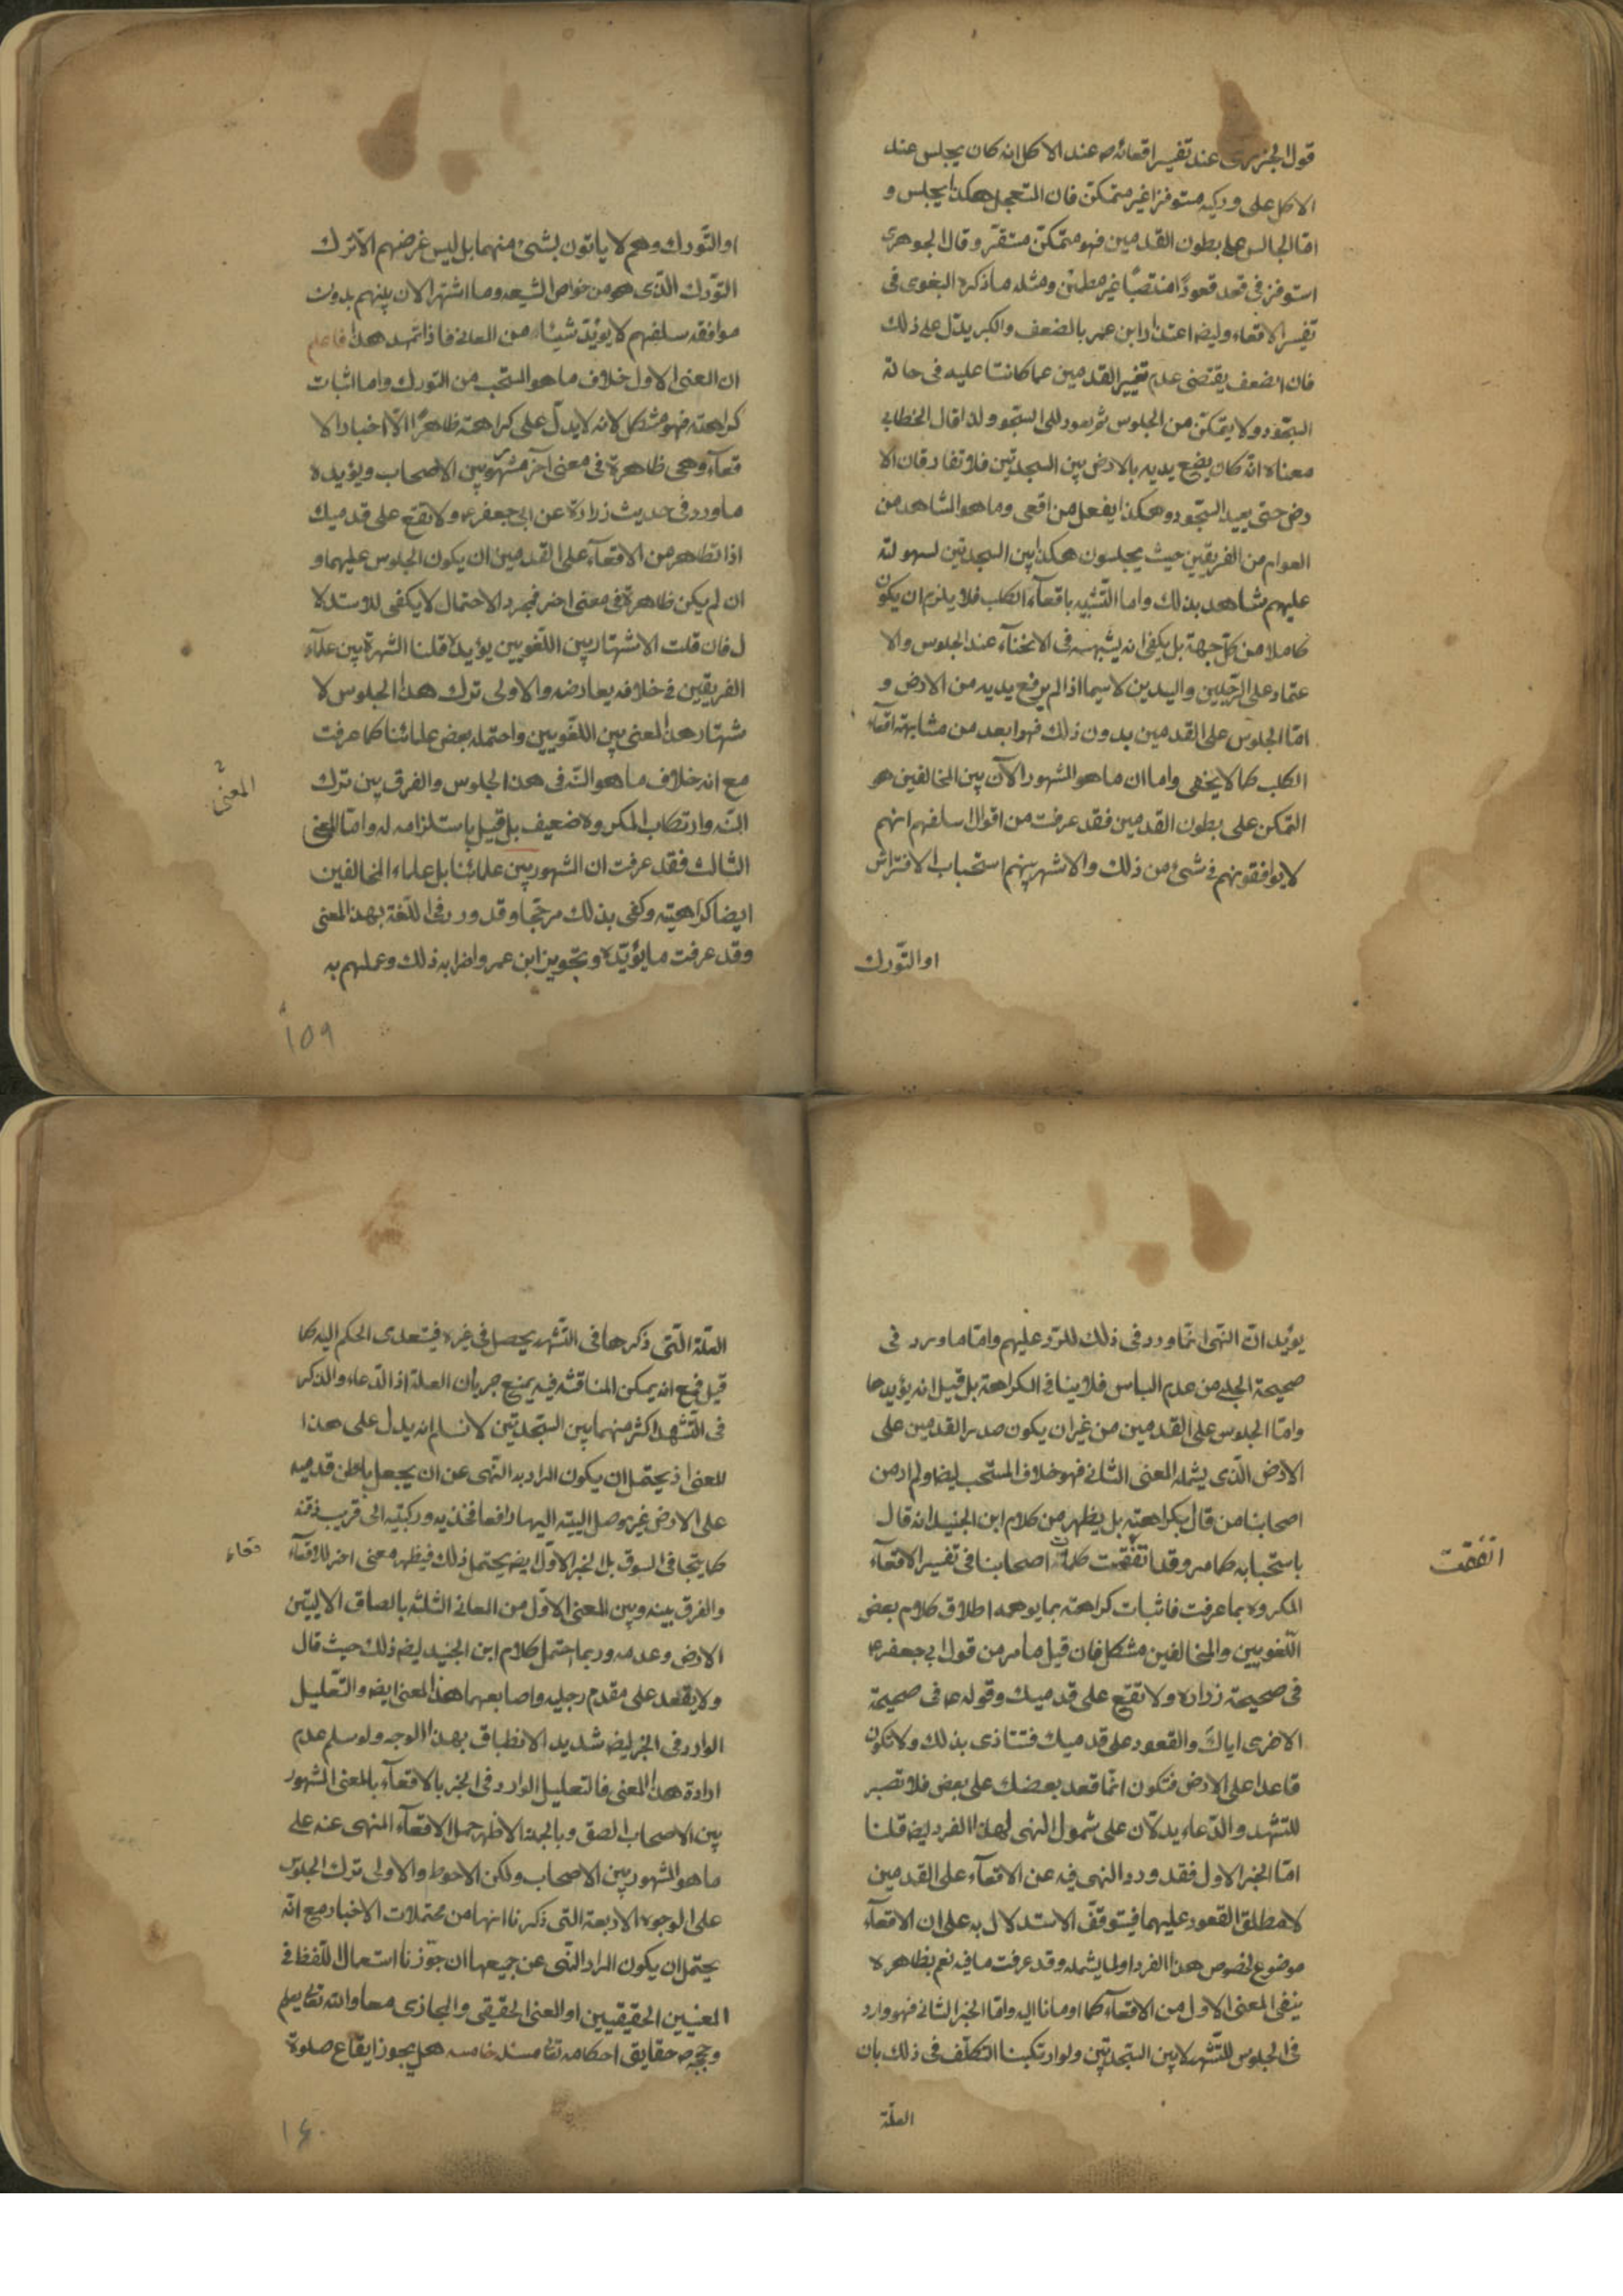 قول الجزري عند تفسير اقعائه ص عند الاكل انه كان يجلس عند
الاكل على وركيه مستوفزا غير متمكن فان المتعجل هكذا يجلس و
امّا الجالس على بطون القدمين فهو متمكّن مستقر وقال الجوهري
استوفز في قعد قعودًا منتصبًا غير مطمئن ومثله ما ذكره البغوى في
تفسير الاقعاء وايضه اعتذار ابن عمر بالضعف والكبر يدلّ على ذلك
فان الضعف يقتضى عدم تغيير القدمين عما كانتا عليه في حالة
السجود ولا يتمكن من الجلوس ثم يعود الى السجود ولذا قال الخطابي
معناه انّه كان يضع يديه بالارض بين السجدتين فلا تفارقان الا
رض حتى يعيد السجود وهكذا يفعل من اقعى وما هو المشاهد من
العوام من الفريقين حيث يجلسون هكذا بين السجدتين لسهولته
عليهم شاهد بذلك واما التّشبيه باقعاء الكلب فلا يلزم ان يكون
كاملا من كلّ جهة بل يكفى انه يشبهه في الانحناء عند الجلوس والا
عتماد على الرّجلين واليدين لا سيما اذا لم يرفع يديه من الارض و
امّا الجلوس على القدمين بدون ذلك فهو ابعد من مشابهة اقعاء
الكلب كما لا يخفى واما ان ما هو المشهور الآن بين المخالفين هو
التمكن على بطون القدمين فقد عرفت من اقوال سلفهم انهم
لا يوافقونهم في شئ من ذلك والاشهر بينهم استحباب الافتراش
او التّورك
او التّورك وهم لا ياتون بشئ منهما بل ليس غرضهم الا ترك
التورك الّذى هو من خواص الشيعه وما اشتهر الان بينهم بدون
موافقة سلفهم لا يؤيّد شيئا من المعانى فاذا تمهد هذا فاعلم
ان المعنى الاول خلاف ما هو المستحب من التورك واما اثبات
كراهته فهو مشكل لانه لا يدلّ على كراهته ظاهرًا الّا اخبار الا
قعاء وهى ظاهرة في معنى آخر مشهور بين الاصحاب ويؤيده
ما ورد فى حديث زرارة عن ابى جعفر ع ولا تقع على قدميك
اذ الظاهر من الاقعاء على القدمين ان يكون الجلوس عليهما و
ان لم يكن ظاهرة في معنى اخر فمجرد الاحتمال لا يكفى للاستدلا
ل فان قلت الاشتهار بين اللّغويين يؤيده قلنا الشهرة بين علماء
الفريقين في خلافه يعارضه والاولى ترك هذا الجلوس لا
شتهار هذا المعنى بين اللغويين واحتمله بعض علمائنا كما عرفت
مع انه خلاف ما هو السّنة فى هذا الجلوس والفرق بين ترك
السّنة وارتكاب المكروه ضعيف بل قيل باستلزامه له وامّا المعنى
المعنى
الثالث فقد عرفت ان المشهور بين علمائنا بل علماء المخالفين
ايضا كراهيته وكفى بذلك مرجّحا وقد ورد فى اللّغة بهذا المعنى
وقد عرفت ما يؤيّده وتجويز ابن عمر واضرابه ذلك وعملهم به
١٥٩
يؤيّد انّ النهى انّما ورد فى ذلك للرّد عليهم وامّا ما ورد فى
صحيحة الحلبى من عدم الباس فلا ينافى الكراهة بل قيل انه يؤيدها
وامّا الجلوس على القدمين من غير ان يكون صدر القدمين على
الارض الّذى يشمله المعنى الثانى فهو خلاف المستحب ايضا ولم ار من
اصحابنا من قال بكراهته بل يظهر من كلام ابن الجنيد انه قال
باستحبابه كما مر وقد اتّفقت كلمات اصحابنا فى تفسير الاقعاء
اتفقت
المكروه بما عرفت فاثبات كراهته بما يوهمه اطلاق كلام بعض
اللّغويين والمخالفين مشكل فان قيل ما مر من قول ابى جعفر ع
فى صحيحة زرارة ولا تقع على قدميك وقوله ع فى صحيحة
الاخرى اياك والقعود على قدميك فتتاذى بذلك ولا تكون
قاعدا على الارض فتكون انّما قعد بعضك على بعض فلا تصبر
للتشهد والدّعاء يدلّان على شمول النهى لهذا الفرد ايضه قلنا
امّا الخبر الاول فقد ورد النهى فيه عن الاقعاء على القدمين
لا مطلق القعود عليهما فيتوقّف الاستدلال به على ان الاقعاء
موضوع لخصوص هذا الفرد او لما يشمله وقد عرفت ما فيه نعم بظاهره
ينفى المعنى الاول من الاقعاء كما اومانا اليه وامّا الخبر الثانى فهو وارد
فى الجلوس للتّشهد لا بين السّجدتين ولو ارتكبنا التكلّف فى ذلك بان
العلّة
العلّة الّتى ذكرها فى التّشهد يحصل فى غيره فيتعدى الحكم اليه كما
قيل فمع انه يمكن المناقشة فيه بمنع جريان العلة اذ الدّعاء والذكر
فى التّشهد اكثر منهما بين السّجدتين لا نسلم انه يدل على هذا
المعنى اذ يحتمل ان يكون المراد به النّهى عن ان يجعل باطن قدميه
على الارض غير موصل اليتيه اليها رافعا فخذيه وركبتيه الى قريب ذقنه
كما يتجافى المسوق بل الخبر الاوّل ايضه يحتمل ذلك فيظهر معنى اخر للاقعاء
قعاء
والفرق بينه وبين المعنى الاوّل من المعانى الثلثة بالصاق الاليتين
الارض وعدمه وربما احتمل كلام ابن الجنيد ايضه ذلك حيث قال
ولا يقعد على مقدم رجليه واصابعهما هذا المعنى ايضه والتّعليل
الوارد فى الخبر ايضه شديد الانطباق بهذا الوجه ولو سلم عدم
ارادة هذا المعنى فالتعليل الوارد فى الخبر بالاقعاء بالمعنى المشهور
بين الاصحاب الصق وبالجملة الاظهر حمل الاقعاء المنهى عنه على
ما هو المشهور بين الاصحاب ولكن الاحوط والاولى ترك الجلوس
على الوجوه الاربعة التى ذكرنا انها من محتملات الاخبار مع انّه
يحتمل ان يكون المراد النّهى عن جميعها ان جوّزنا استعمال اللّفظ فى
المعنيين الحقيقيين او المعنى الحقيقى والمجازى معا والله تعالى يعلم
وحججه ص حقايق احكامه تعا مسئله خامسه هل يجوز ايقاع صلوة
١٦٠